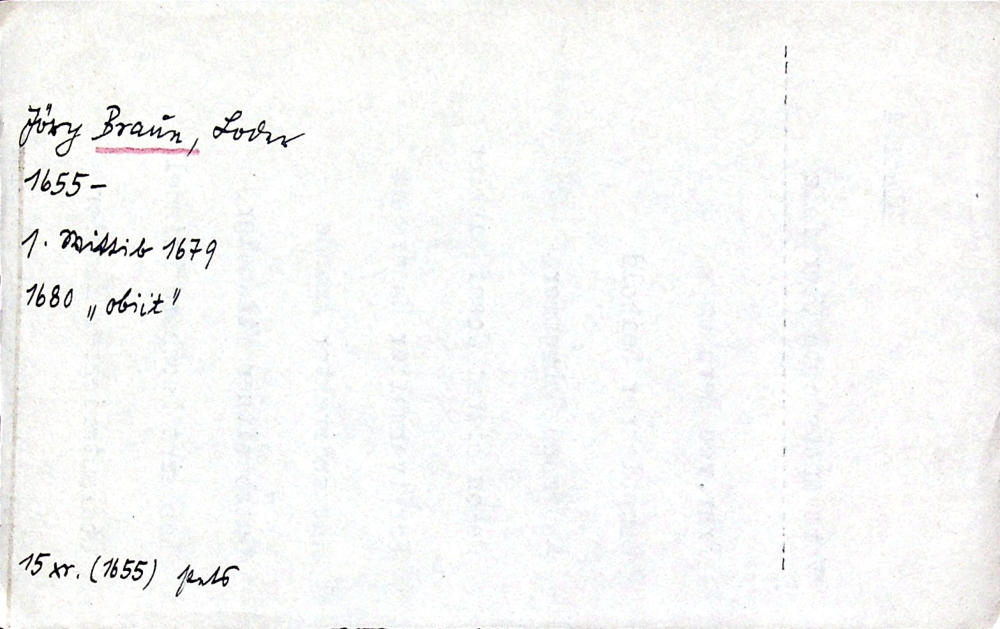 Jörg Braun, Loder
1655 –
1. Wittib 1679
1680 „obiit"
15 xr. (1655)